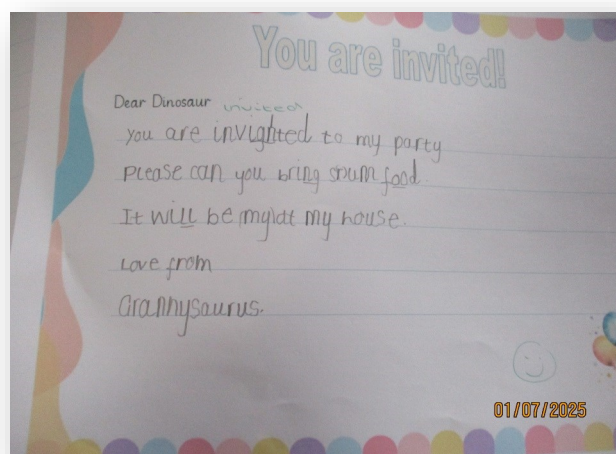 You are invited!
Dear Dinosaur invited
You are invighted to my party
Please can you bring sum food.
It will be my at my house.
Love from
Grannysaurus.
01/07/2025